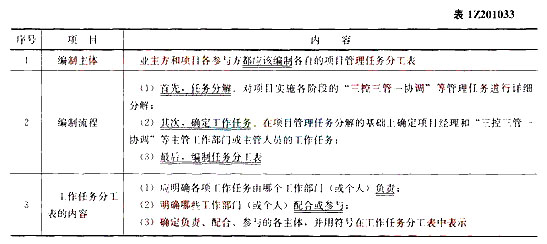 表 1Z201033
序号 项 目 内 容
1 编制主体 业主方和项目各参与方都应该编制各自的项目管理任务分工表
2 编制流程
(1)首先，任务分解。对项目实施各阶段的“三控三管一协调”等管理任务进行详细
分解；
(2)其次，确定工作任务。在项目管理任务分解的基础上确定项目经理和“三控三管一
协调”等主管工作部门或主管人员的工作任务；
(3)最后，编制任务分工表
3 工作任务分工
表的内容
(1)应明确各项工作任务由哪个工作部门（或个人）负责；
(2)明确哪些工作部门（或个人）配合或参与；
(3)确定负责、配合、参与的各主体，并用符号在工作任务分工表中表示